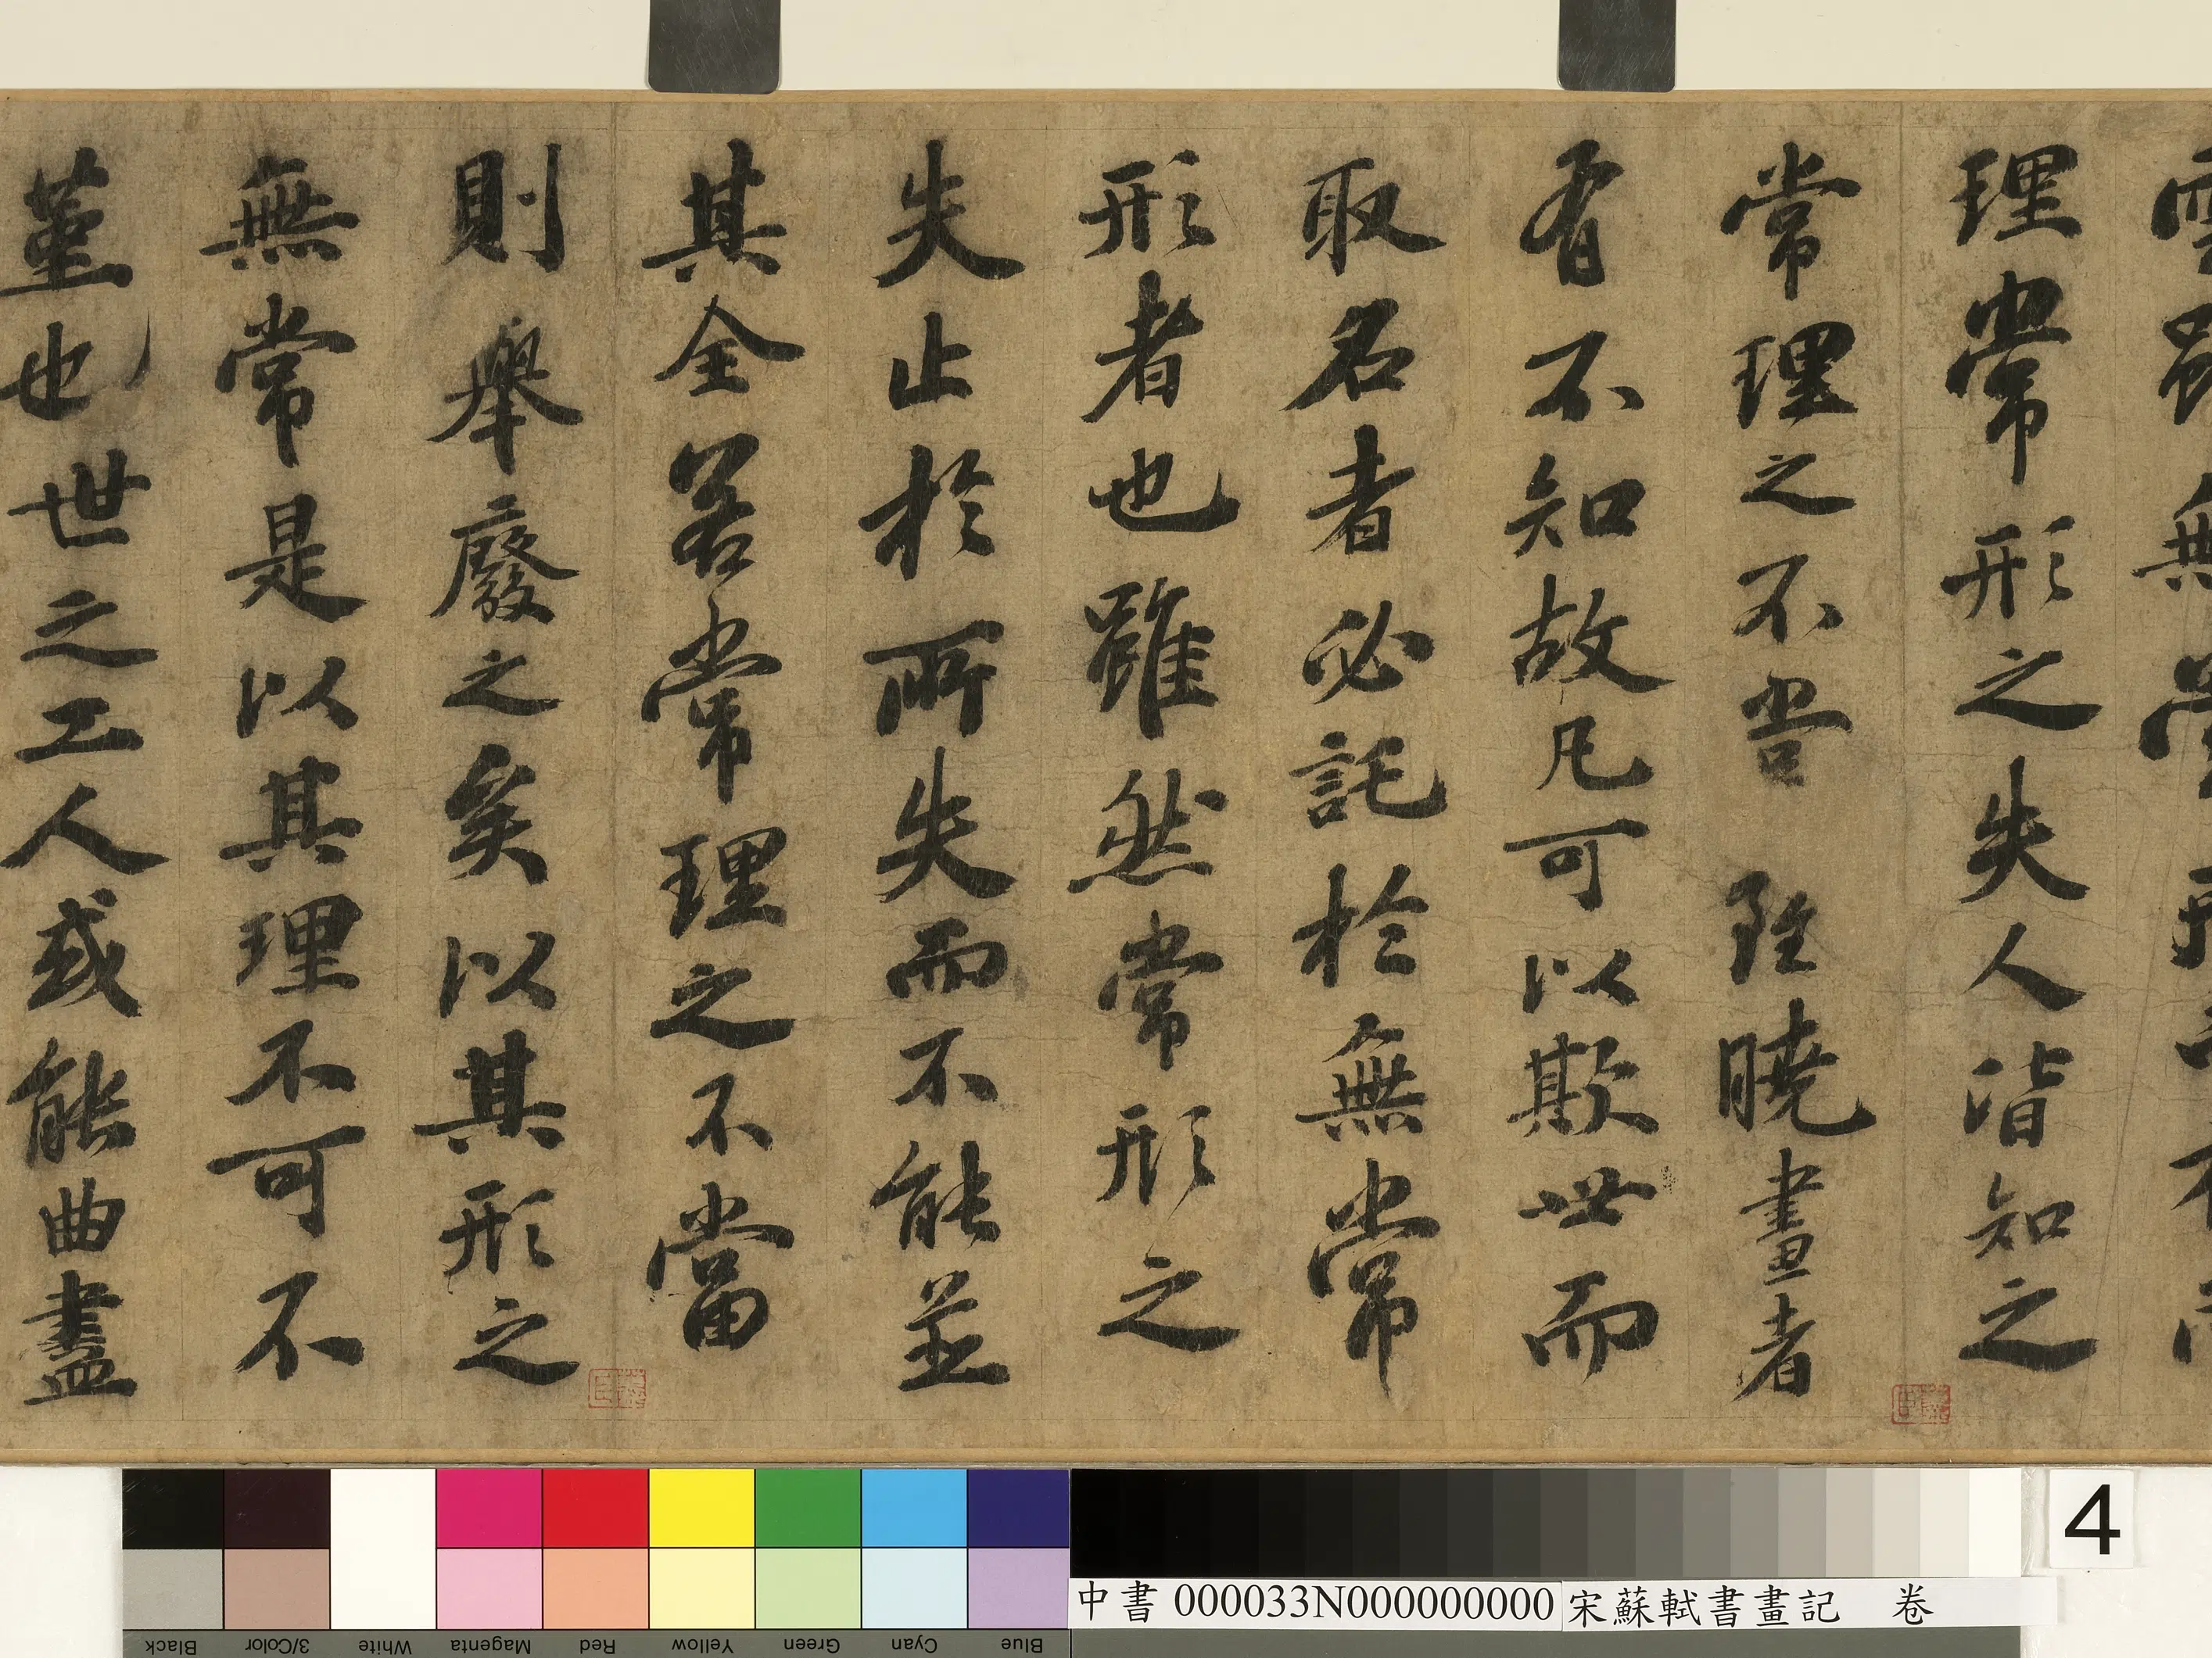 無常
理常形之失人皆知之
常理之不當雖曉畫者
有不知故凡可以欺世而
取名者必託於無常
形者也雖然常形之
失止於所失而不能並
其全若常理之不當
則舉廢之矣以其形之
無常是以其理不可不
堇也世之工人或能曲盡
4
中書 000033N000000000 宋蘇軾書畫記 卷
Black 3/Color White Magenta Red Yellow Green Cyan Blue